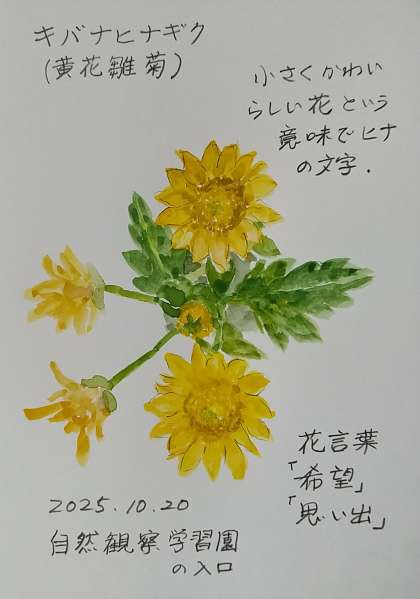 キバナヒナギク
(黄花雛菊)
小さくかわい
らしい花という
意味でヒナ
の文字.
花言葉
「希望」
「思い出」
2025.10.20
自然観察学習園
の入口